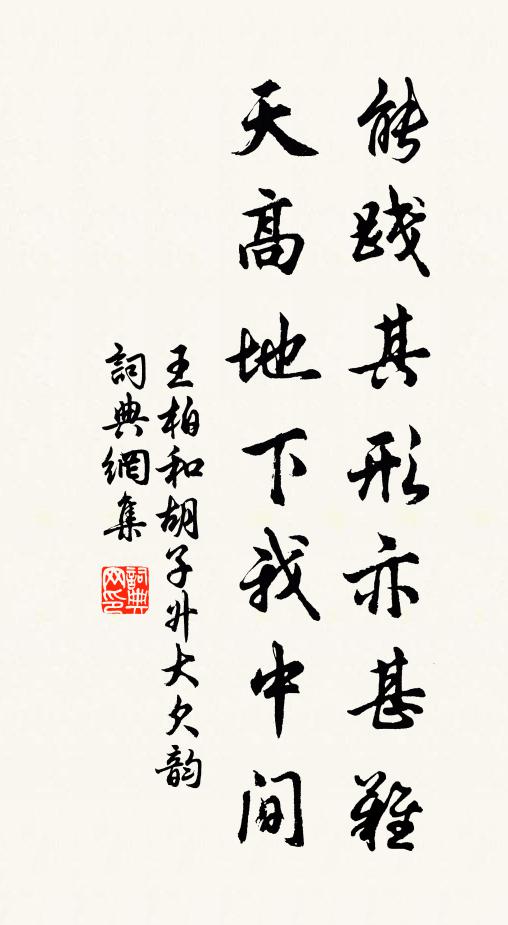 能踐其形亦甚難
天高地下我中间
王柏和胡子升大久韵
詞典網集
詞典網印